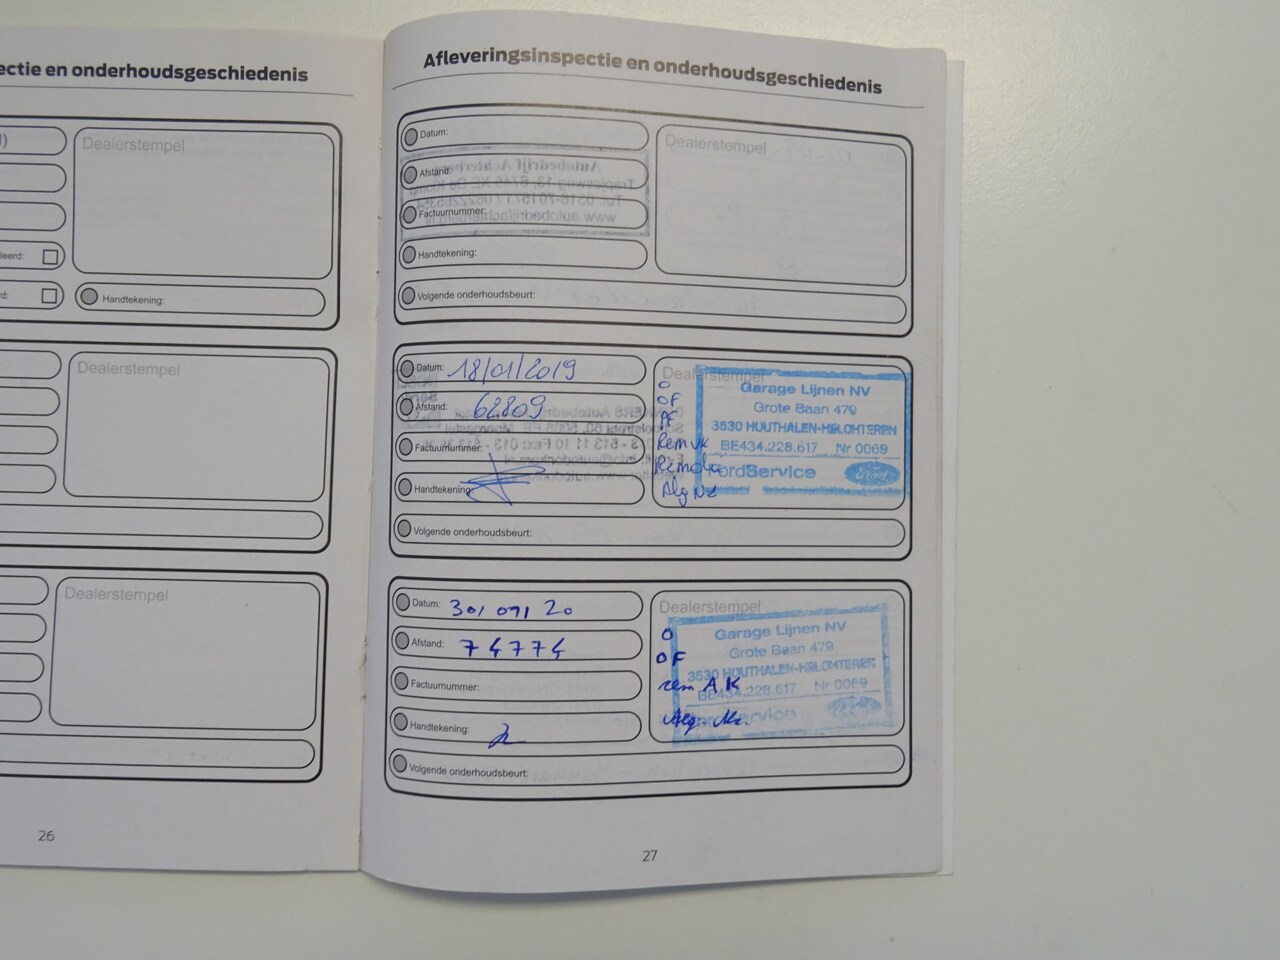 ectie en onderhoudsgeschiedenis
Dealerstempel
leerd:
d:
Handtekening:
Dealerstempel
Dealerstempel
26
Afleveringsinspectie en onderhoudsgeschiedenis
Datum:
Dealerstempel
Afstand:
Factuurnummer:
Handtekening:
Volgende onderhoudsbeurt:
Datum: 18/01/2019
Afstand: 62809
Factuurnummer:
Handtekening:
Dealerstempel
O
OF
PF
Rem vk
Alg Nz
Garage Lijnen NV
Grote Baan 479
3530 HOUTHALEN-HELCHTEREN
BE434.228.617 Nr 0069
FordService
Ford
Volgende onderhoudsbeurt:
Datum: 30/09/20
Afstand: 74774
Factuurnummer:
Handtekening:
Dealerstempel
O
OF
rem A K
Alg. Nz.
Garage Lijnen NV
Grote Baan 479
3530 HOUTHALEN-HELCHTEREN
BE434.228.617 Nr 0069
FordService
Volgende onderhoudsbeurt:
27